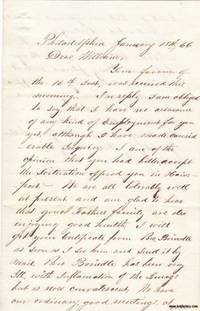 Philadelphia January 18th/66
Dear William,
Your favour of
the 16th Inst. was received this
morning. In reply I am obliged
to say that I have no assurance
of any kind of Employment for you
yet, although I have made consid-
erable inquiry. I am of the
opinion that you had better accept
the Situation offered you in
We are all tolerably well
at present, and am glad to hear
that your Fathers family are also
enjoying good health. I will
get your Certificate from Bro Brindle
as Soon as I see him and Send it by
mail. Bro Brindle has been very
ill, with Inflamation of the Lungs
but is now convalescent. We have
our ordinary, good meetings at